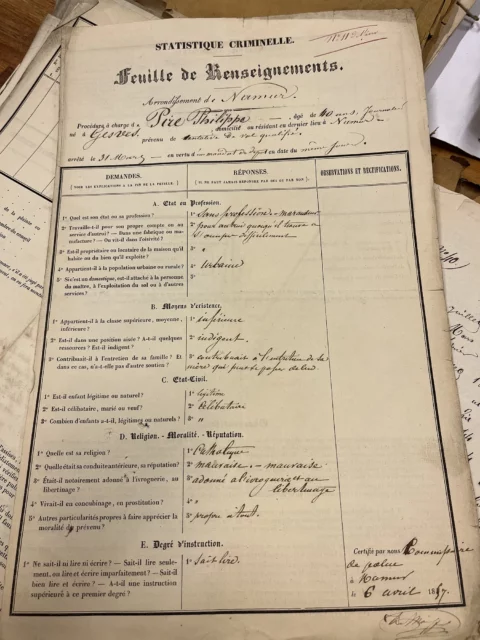 STATISTIQUE CRIMINELLE.
Feuille de Renseignements.
Arrondissement de Namur
Procédure à charge de Pire Philippe âgé de 40 ans, Journalier
né à Gesves domicilié ou résidant en dernier lieu à Namur
prévenu de tentative de vol qualifié.
arrêté le 31 Mars en vertu d'un mandat de dépôt en date du même jour.
DEMANDES. RÉPONSES. OBSERVATIONS ET RECTIFICATIONS.
A. Etat ou Profession.
1° Quel est son état ou sa profession ? 1° Sans profession - maraudeur
2° Travaille-t-il pour son propre compte ou au 2° pour autrui quoiqu'il
service d'autrui ? — Dans une fabrique ou ma- s'occupe difficilement
nufacture ? — Ou vit-il dans l'oisiveté ?
3° Est-il propriétaire ou locataire de la maison qu'il 3° "
habite ou du bien qu'il exploite ?
4° Appartient-il à la population urbaine ou rurale ? 4° Urbaine
5° Si c'est un domestique, est-il attaché à la personne 5°
du maître, à l'exploitation du sol ou à d'autres
services ?
B. Moyens d'existence.
1° Appartient-il à la classe supérieure, moyenne, 1° inférieure
inférieure ?
2° Est-il dans une position aisée ? A-t-il quelques 2° indigent.
ressources ? Est-il indigent ?
3° Contribuait-il à l'entretien de sa famille ? Et 3° contribuait à l'entretien de sa
dans ce cas, n'a-t-elle pas d'autre soutien ? mère qui peut se passer de lui.
C. Etat-Civil.
1° Est-il enfant légitime ou naturel ? 1° légitime
2° Est-il célibataire, marié ou veuf ? 2° Célibataire
3° Combien d'enfants a-t-il, légitimes ou naturels ? 3° "
D. Religion. - Moralité. - Réputation.
1° Quelle est sa religion ? 1° Catholique
2° Quelle était sa conduite antérieure, sa réputation ? 2° mauvaise - mauvaise
3° Était-il notoirement adonné à l'ivrognerie, au 3° adonné à l'ivrognerie et au
libertinage ? libertinage
4° Vivait-il en concubinage, en prostitution ? 4° "
5° Autres particularités propres à faire apprécier la 5° propre à tout.
moralité du prévenu ?
E. Degré d'instruction.
1° Ne sait-il ni lire ni écrire ? — Sait-il lire seule- 1° Sait lire.
ment, ou lire et écrire imparfaitement ? — Sait-il
bien lire et écrire ? — A-t-il une instruction
supérieure à ce premier degré ?
Certifié par nous Commissaire
de police
à Namur
le 6 avril 1847.